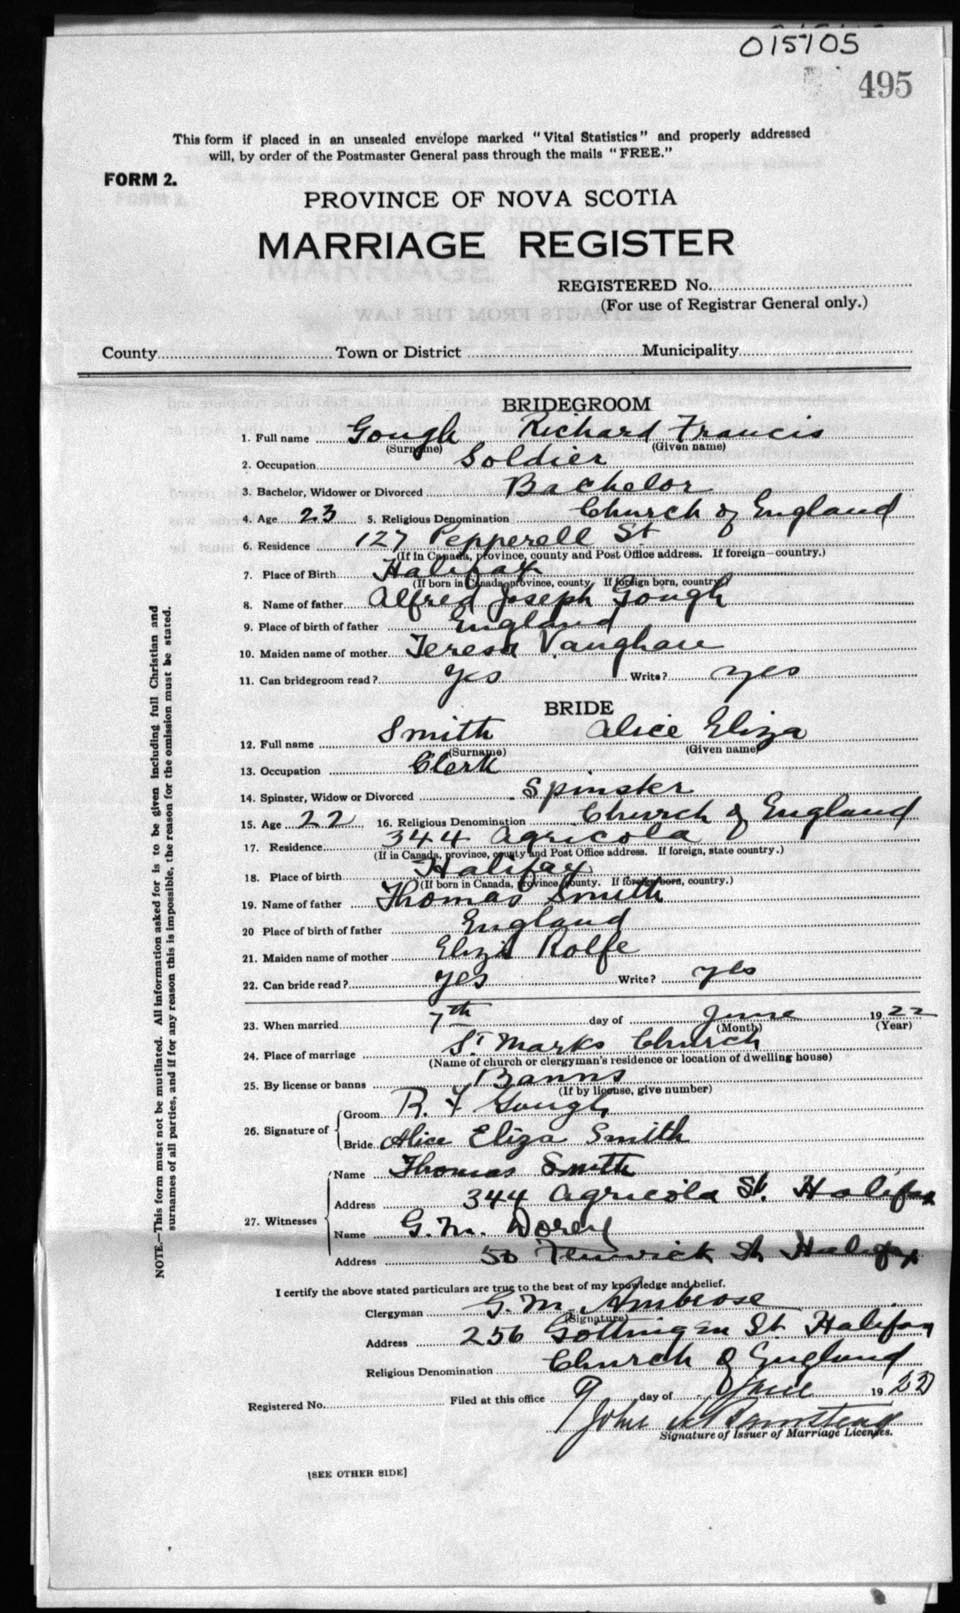 015705
495
This form if placed in an unsealed envelope marked "Vital Statistics" and properly addressed
will, by order of the Postmaster General pass through the mails "FREE."
FORM 2.
PROVINCE OF NOVA SCOTIA
MARRIAGE REGISTER
REGISTERED No.
(For use of Registrar General only.)
County Town or District Municipality
BRIDEGROOM
1. Full name Gough Richard Francis
(Surname) (Given name)
2. Occupation Soldier
3. Bachelor, Widower or Divorced Bachelor
4. Age 23 5. Religious Denomination Church of England
6. Residence 127 Pepperell St
(If in Canada, province, county and Post Office address. If foreign—country.)
7. Place of Birth Halifax
(If born in Canada, province, county. If foreign born, country)
8. Name of father Alfred Joseph Gough
9. Place of birth of father England
10. Maiden name of mother Teresa Vaughan
11. Can bridegroom read? Yes Write? yes
BRIDE
12. Full name Smith Alice Eliza
(Surname) (Given name)
13. Occupation Clerk
14. Spinster, Widow or Divorced Spinster
15. Age 22 16. Religious Denomination Church of England
17. Residence 344 Agricola
(If in Canada, province, county and Post Office address. If foreign, state country.)
18. Place of birth Halifax
(If born in Canada, province, county. If foreign born, country.)
19. Name of father Thomas Smith
20 Place of birth of father England
21. Maiden name of mother Eliza Rolfe
22. Can bride read? yes Write? yes
23. When married 7th day of June 1922
(Month) (Year)
24. Place of marriage St Marks Church
(Name of church or clergyman's residence or location of dwelling house)
25. By license or banns Banns
(If by license, give number)
26. Signature of Groom R. F Gough
Bride Alice Eliza Smith
27. Witnesses Name Thomas Smith
Address 344 Agricola St. Halifax
Name G. M. Dorey
Address 50 Fenwick St Halifax
I certify the above stated particulars are true to the best of my knowledge and belief.
Clergyman G. M. Ambrose
(Signature)
Address 256 Gottingen St. Halifax
Religious Denomination Church of England
Registered No. Filed at this office 9 day of June 1922
John
Signature of Issuer of Marriage Licenses.
[SEE OTHER SIDE]
NOTE.—This form must not be mutilated. All information asked for is to be given including full Christian and
surnames of all parties, and if for any reason this is impossible, the reason for the omission must be stated.